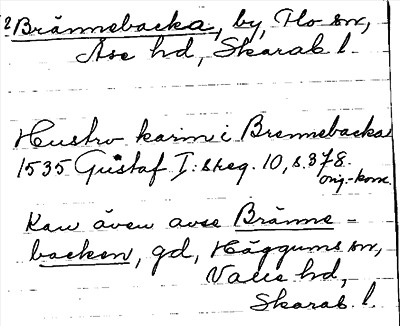 ? Brännebacka, by, Flo sn,
Åse hd, Skarab. l.
Hustro karin i Brennebacka
1535 Gustaf I:s reg. 10, s. 378.
orig.-konc.
Kan även avse Bränne-
backen, gd, Häggums sn,
Valle hd,
Skarab. l.